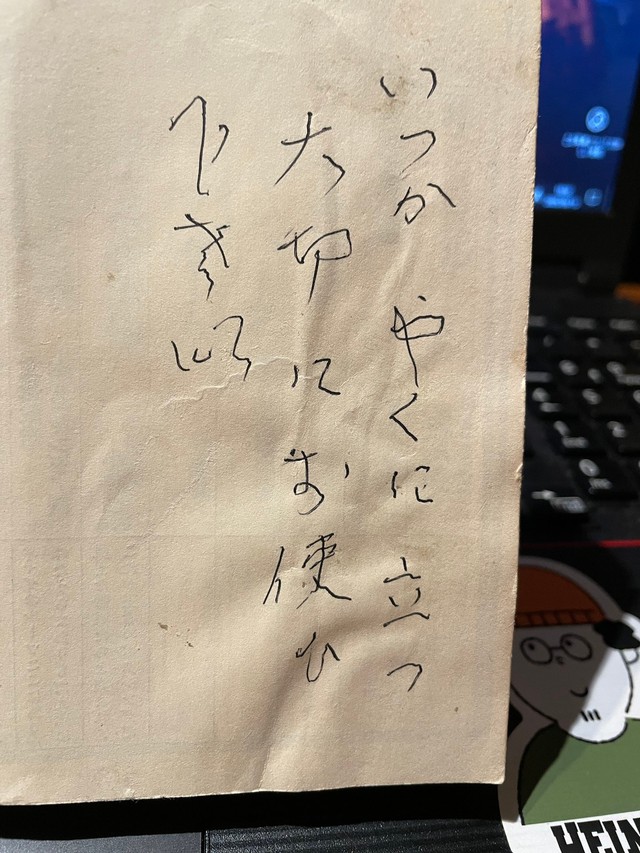 いつか やくに 立つ
大切にお使ひ
下さい
HEIN